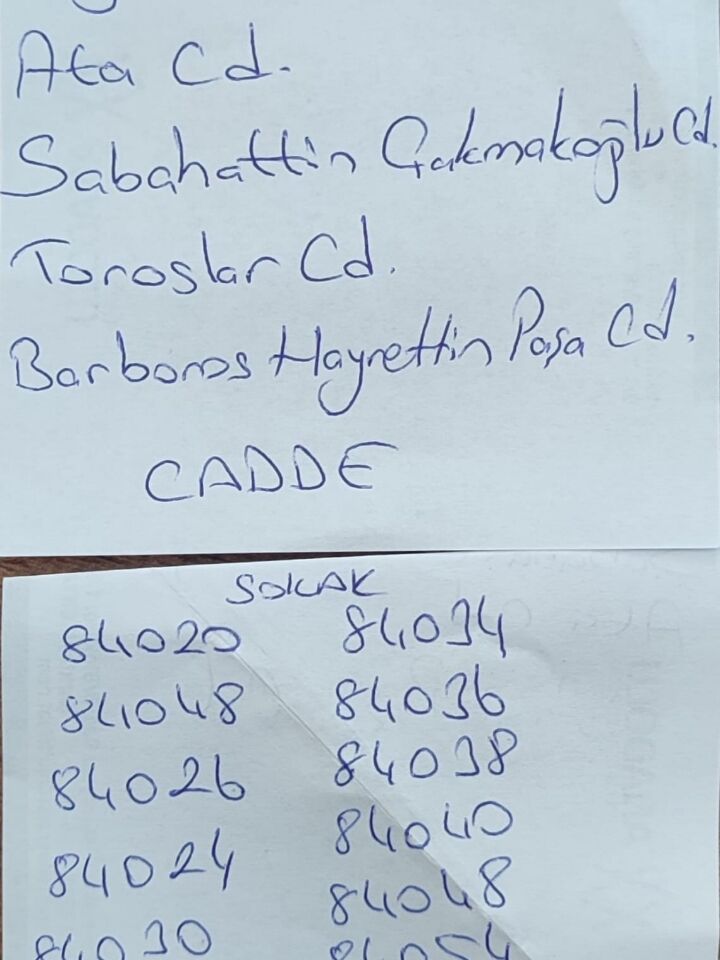 Ata Cd.
Sabahattin Çakmakoğlu Cd.
Toroslar Cd.
Barboros Hayrettin Paşa Cd.
CADDE
SOKAK
84020 84034
84048 84036
84026 84038
84024 84040
84030 84048
84054